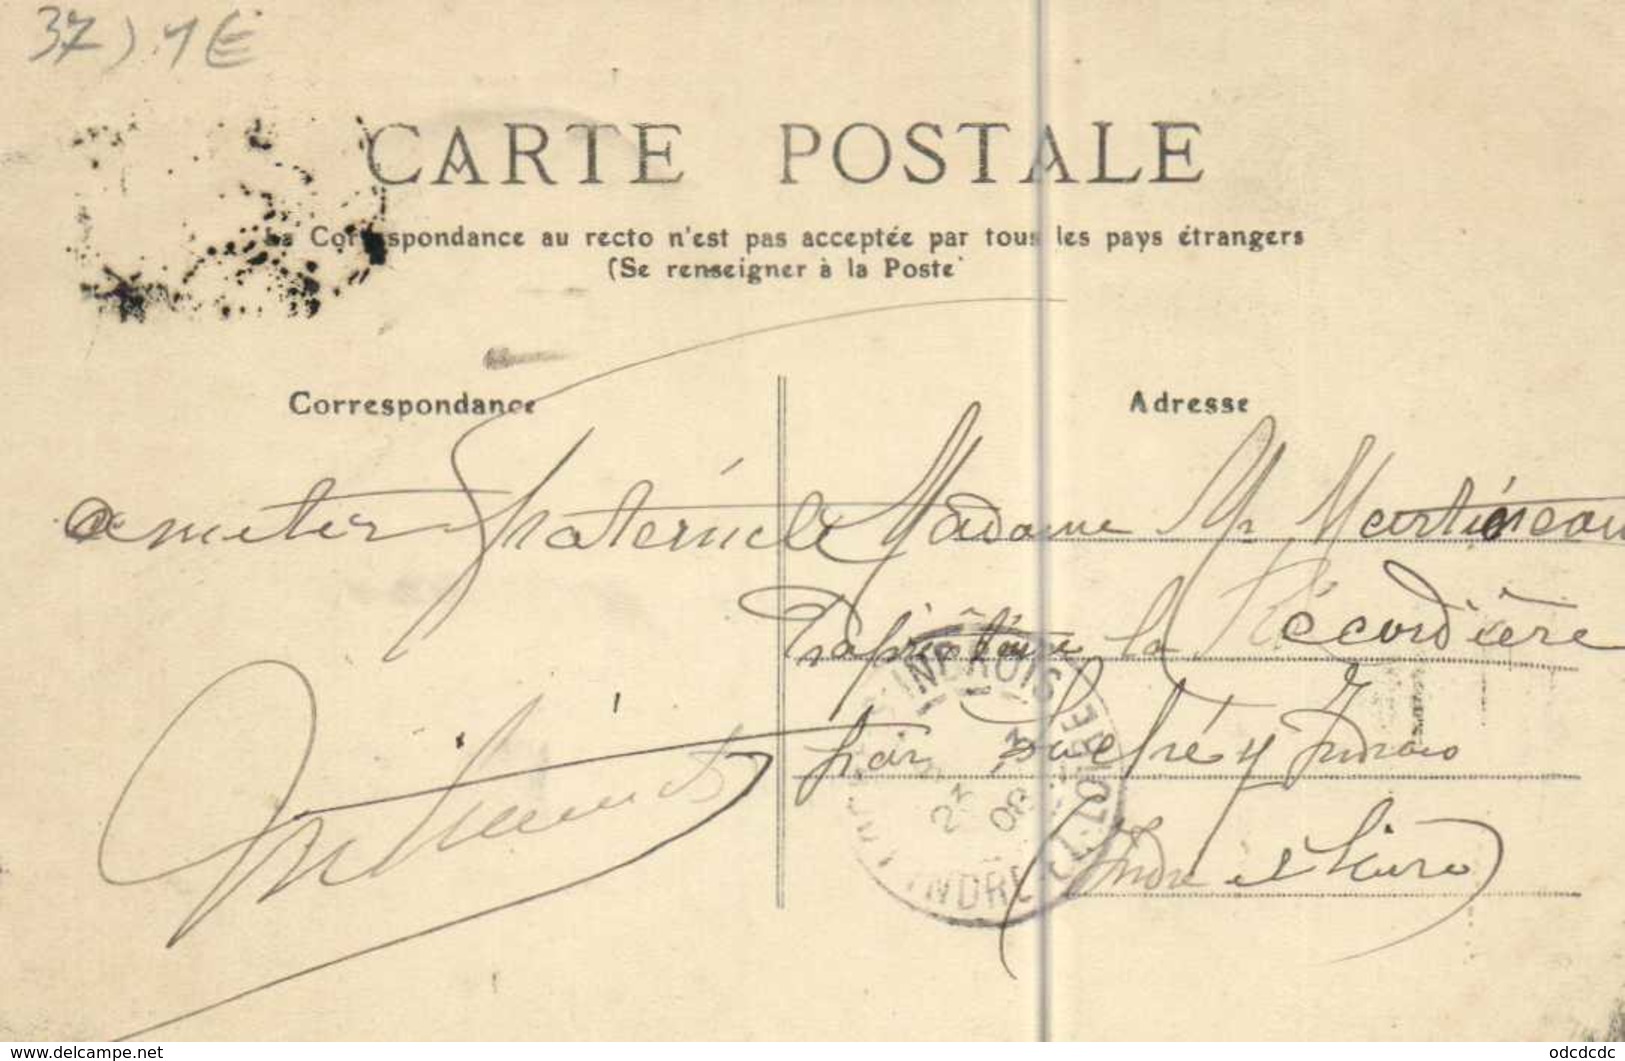 37) 1€
CARTE POSTALE
La Correspondance au recto n'est pas acceptée par tous les pays étrangers
(Se renseigner à la Poste
Correspondance
Adresse
amitiér fraternelle
Madame Mr Martineau
Propriétaire la Récordière
par
Indrois
Indre et Loire
INDROIS
23
08
INDRE ET LOIRE
www.delcampe.net
odcdcdc